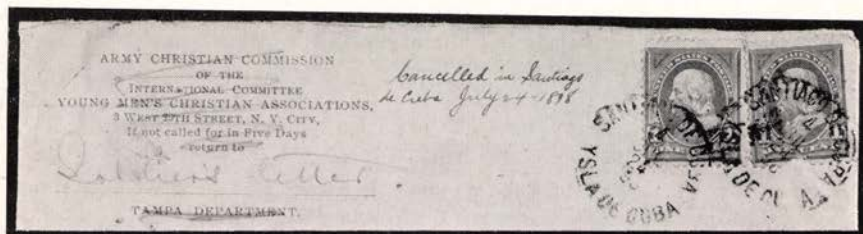 ARMY CHRISTIAN COMMISSION
OF THE
INTERNATIONAL COMMITTEE
YOUNG MEN'S CHRISTIAN ASSOCIATIONS,
3 WEST 29TH STREET, N. Y. CITY,
If not called for in Five Days
return to
Soldier's Letter.
TAMPA DEPARTMENT.
Cancelled in Santiago
de Cuba July 24-1898
SANTIAGO DE CUBA
YSLA DE CUBA
SANTIAGO DE CUBA